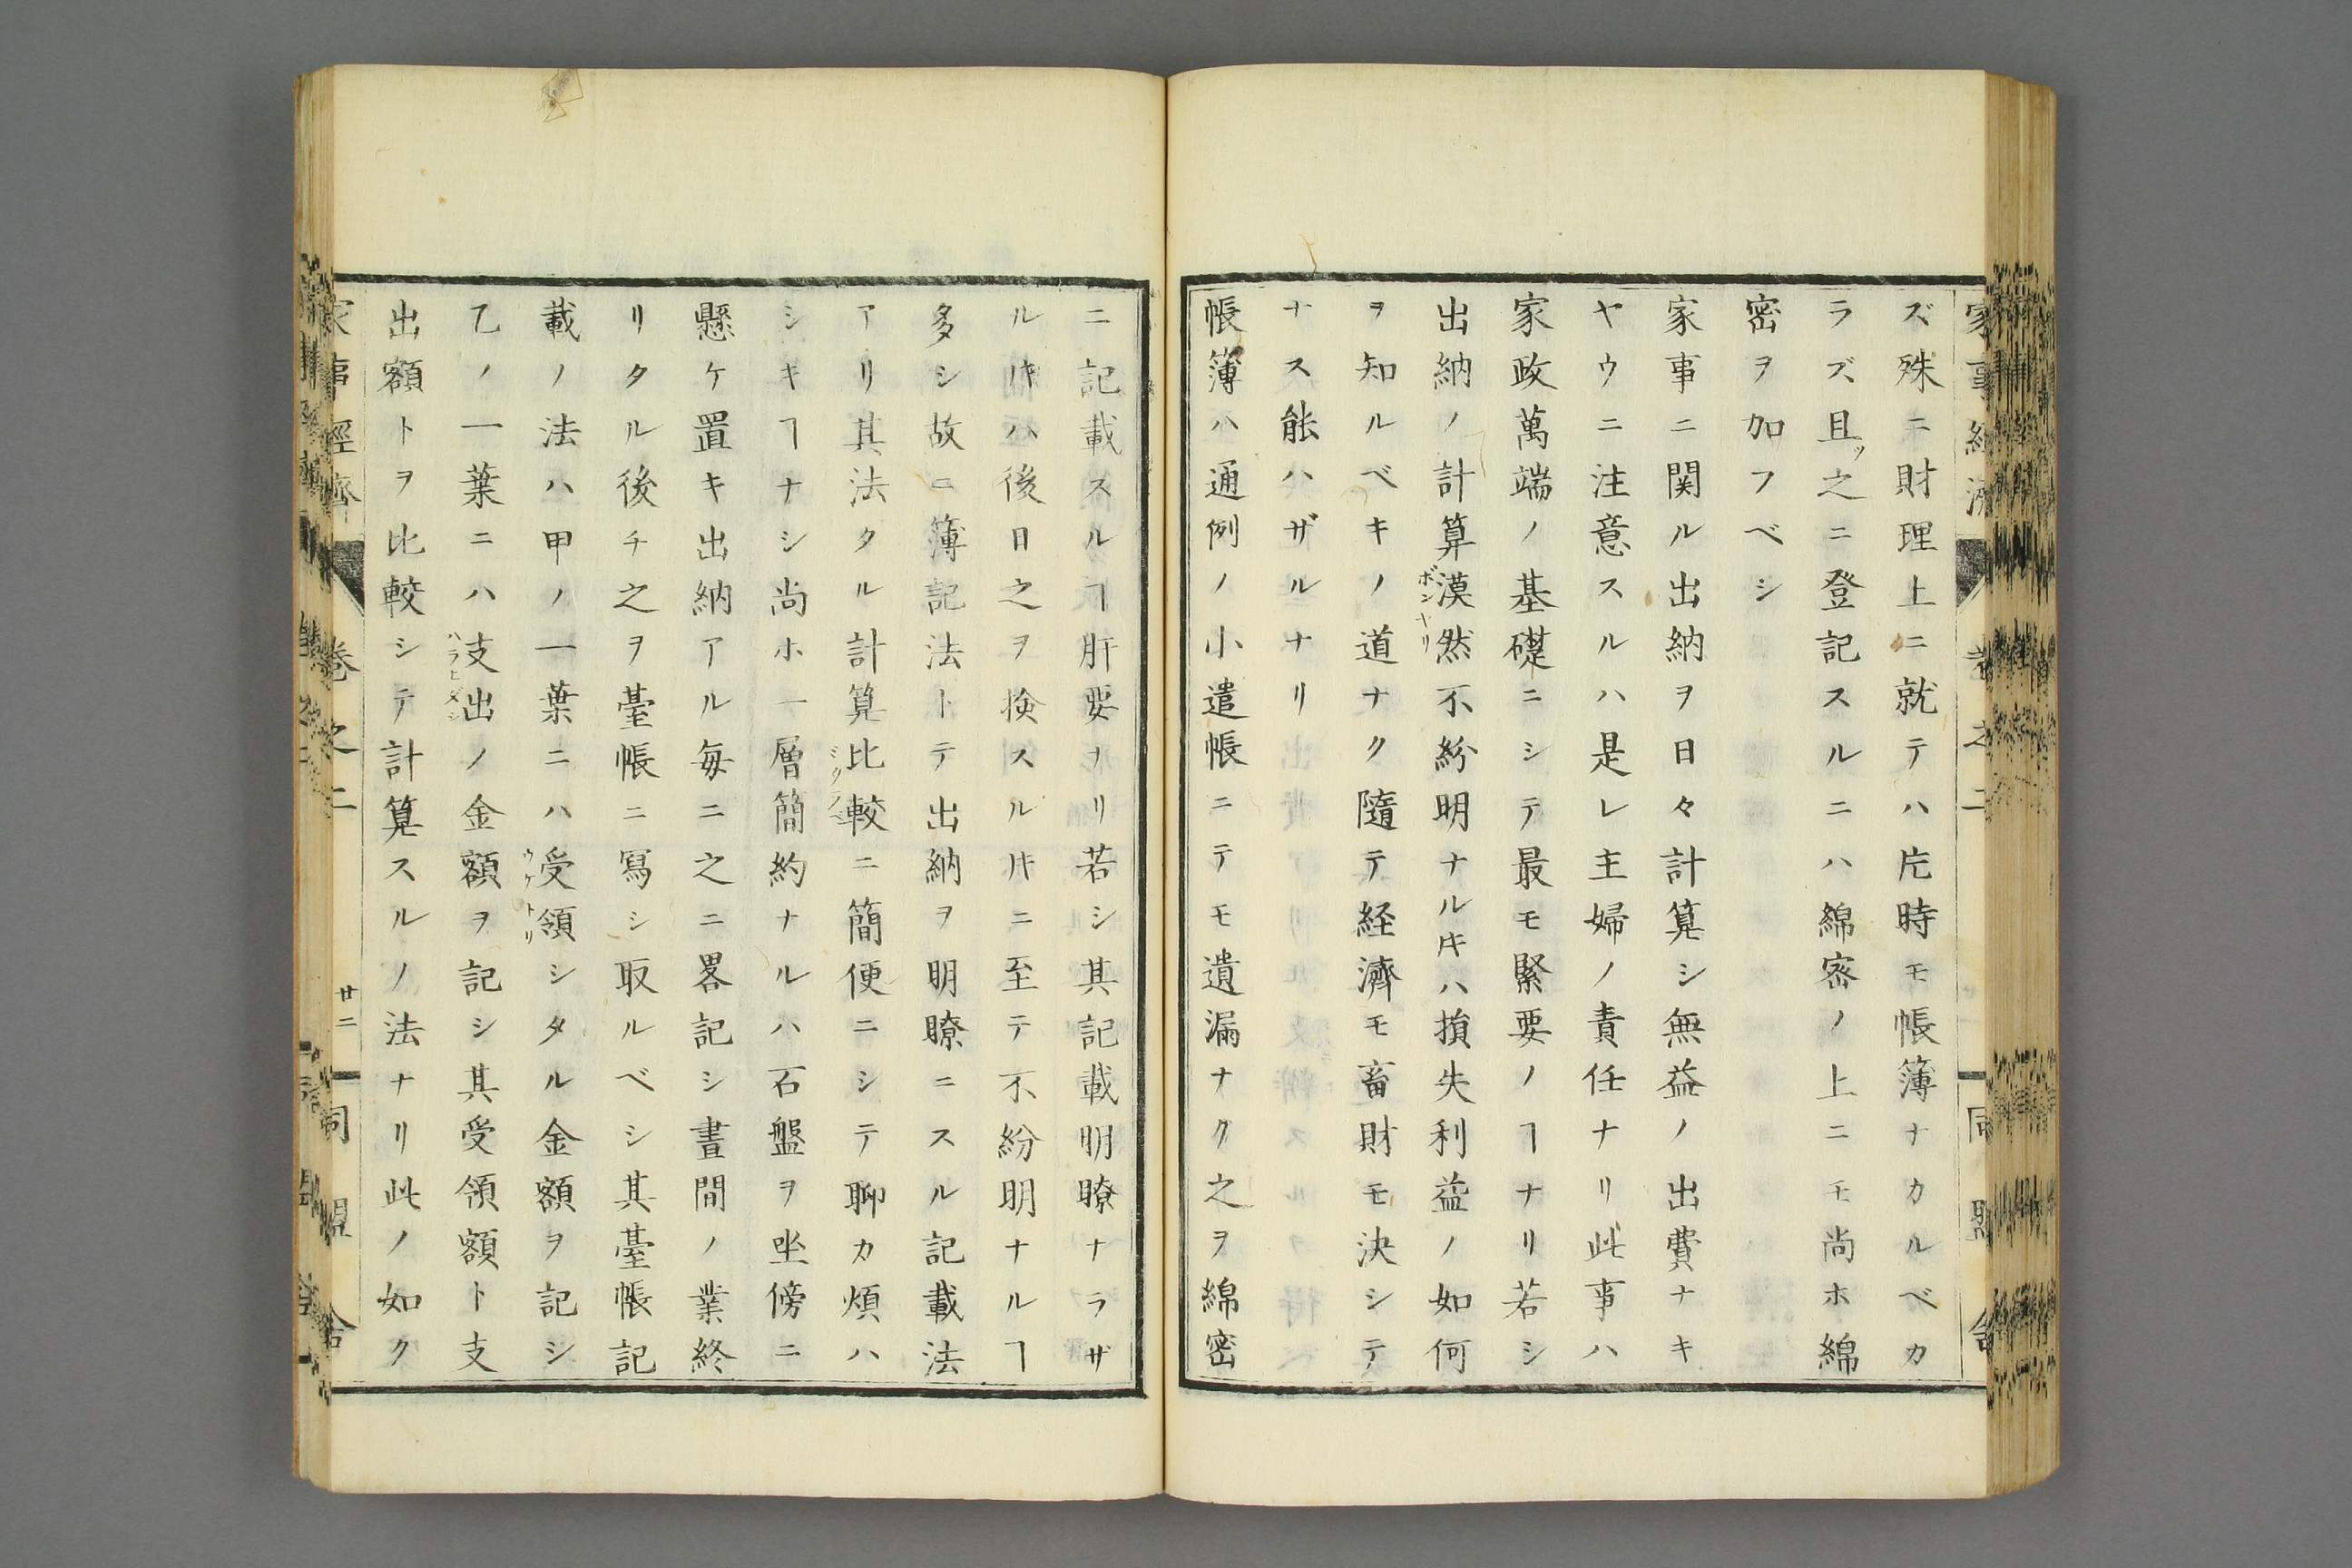 ズ殊ニ財理上ニ就テハ片時モ帳簿ナカルベカ
ラズ且ツ之ニ登記スルニハ綿密ノ上ニモ尚ホ綿
密ヲ加フベシ
家事ニ関ル出納ヲ日々計算シ無益ノ出費ナキ
ヤウニ注意スルハ是レ主婦ノ責任ナリ此事ハ
家政萬端ノ基礎ニシテ最モ緊要ノヿナリ若シ
出納ノ計算漠然不紛明ナルキハ損失利益ノ如何
ボンヤリ
ヲ知ルベキノ道ナク隨テ経濟モ畜財モ決シテ
ナス能ハザルナリ
帳簿ハ通例ノ小遣帳ニテモ遺漏ナク之ヲ綿密
ニ記載スルヿ肝要ナリ若シ其記載明瞭ナラザ
ルキハ後日之ヲ検スルキニ至テ不紛明ナルヿ
多シ故ニ簿記法トテ出納ヲ明瞭ニスル記載法
アリ其法タル計算比較ニ簡便ニシテ聊カ煩ハ
シキヿナシ尚ホ一層簡約ナルハ石盤ヲ坐傍ニ
懸ケ置キ出納アル毎ニ之ニ畧記シ晝間ノ業終
リタル後チ之ヲ臺帳ニ寫シ取ルベシ其臺帳記
載ノ法ハ甲ノ一葉ニハ受領シタル金額ヲ記シ
ウケトリ
乙ノ一葉ニハ支出ノ金額ヲ記シ其受領額ト支
ハラヒダシ
出額トヲ比較シテ計算スルノ法ナリ此ノ如ク
家事經濟 卷之二 廿二 同盟舎